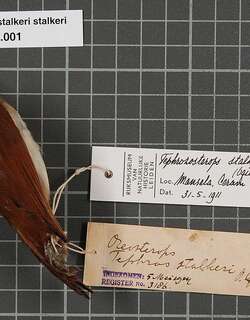 stalkeri stalkeri
.001
RIJKSMUSEUM
VAN
NATUURLIJKE
HISTORIE
LEIDEN
Tephrozosterops stalk
Loc. Mansela, Ceram
Dat. 31-5-1911
Oreosterops
Tephros stalkeri
INGEKOMEN:
REGISTER No. 3186.